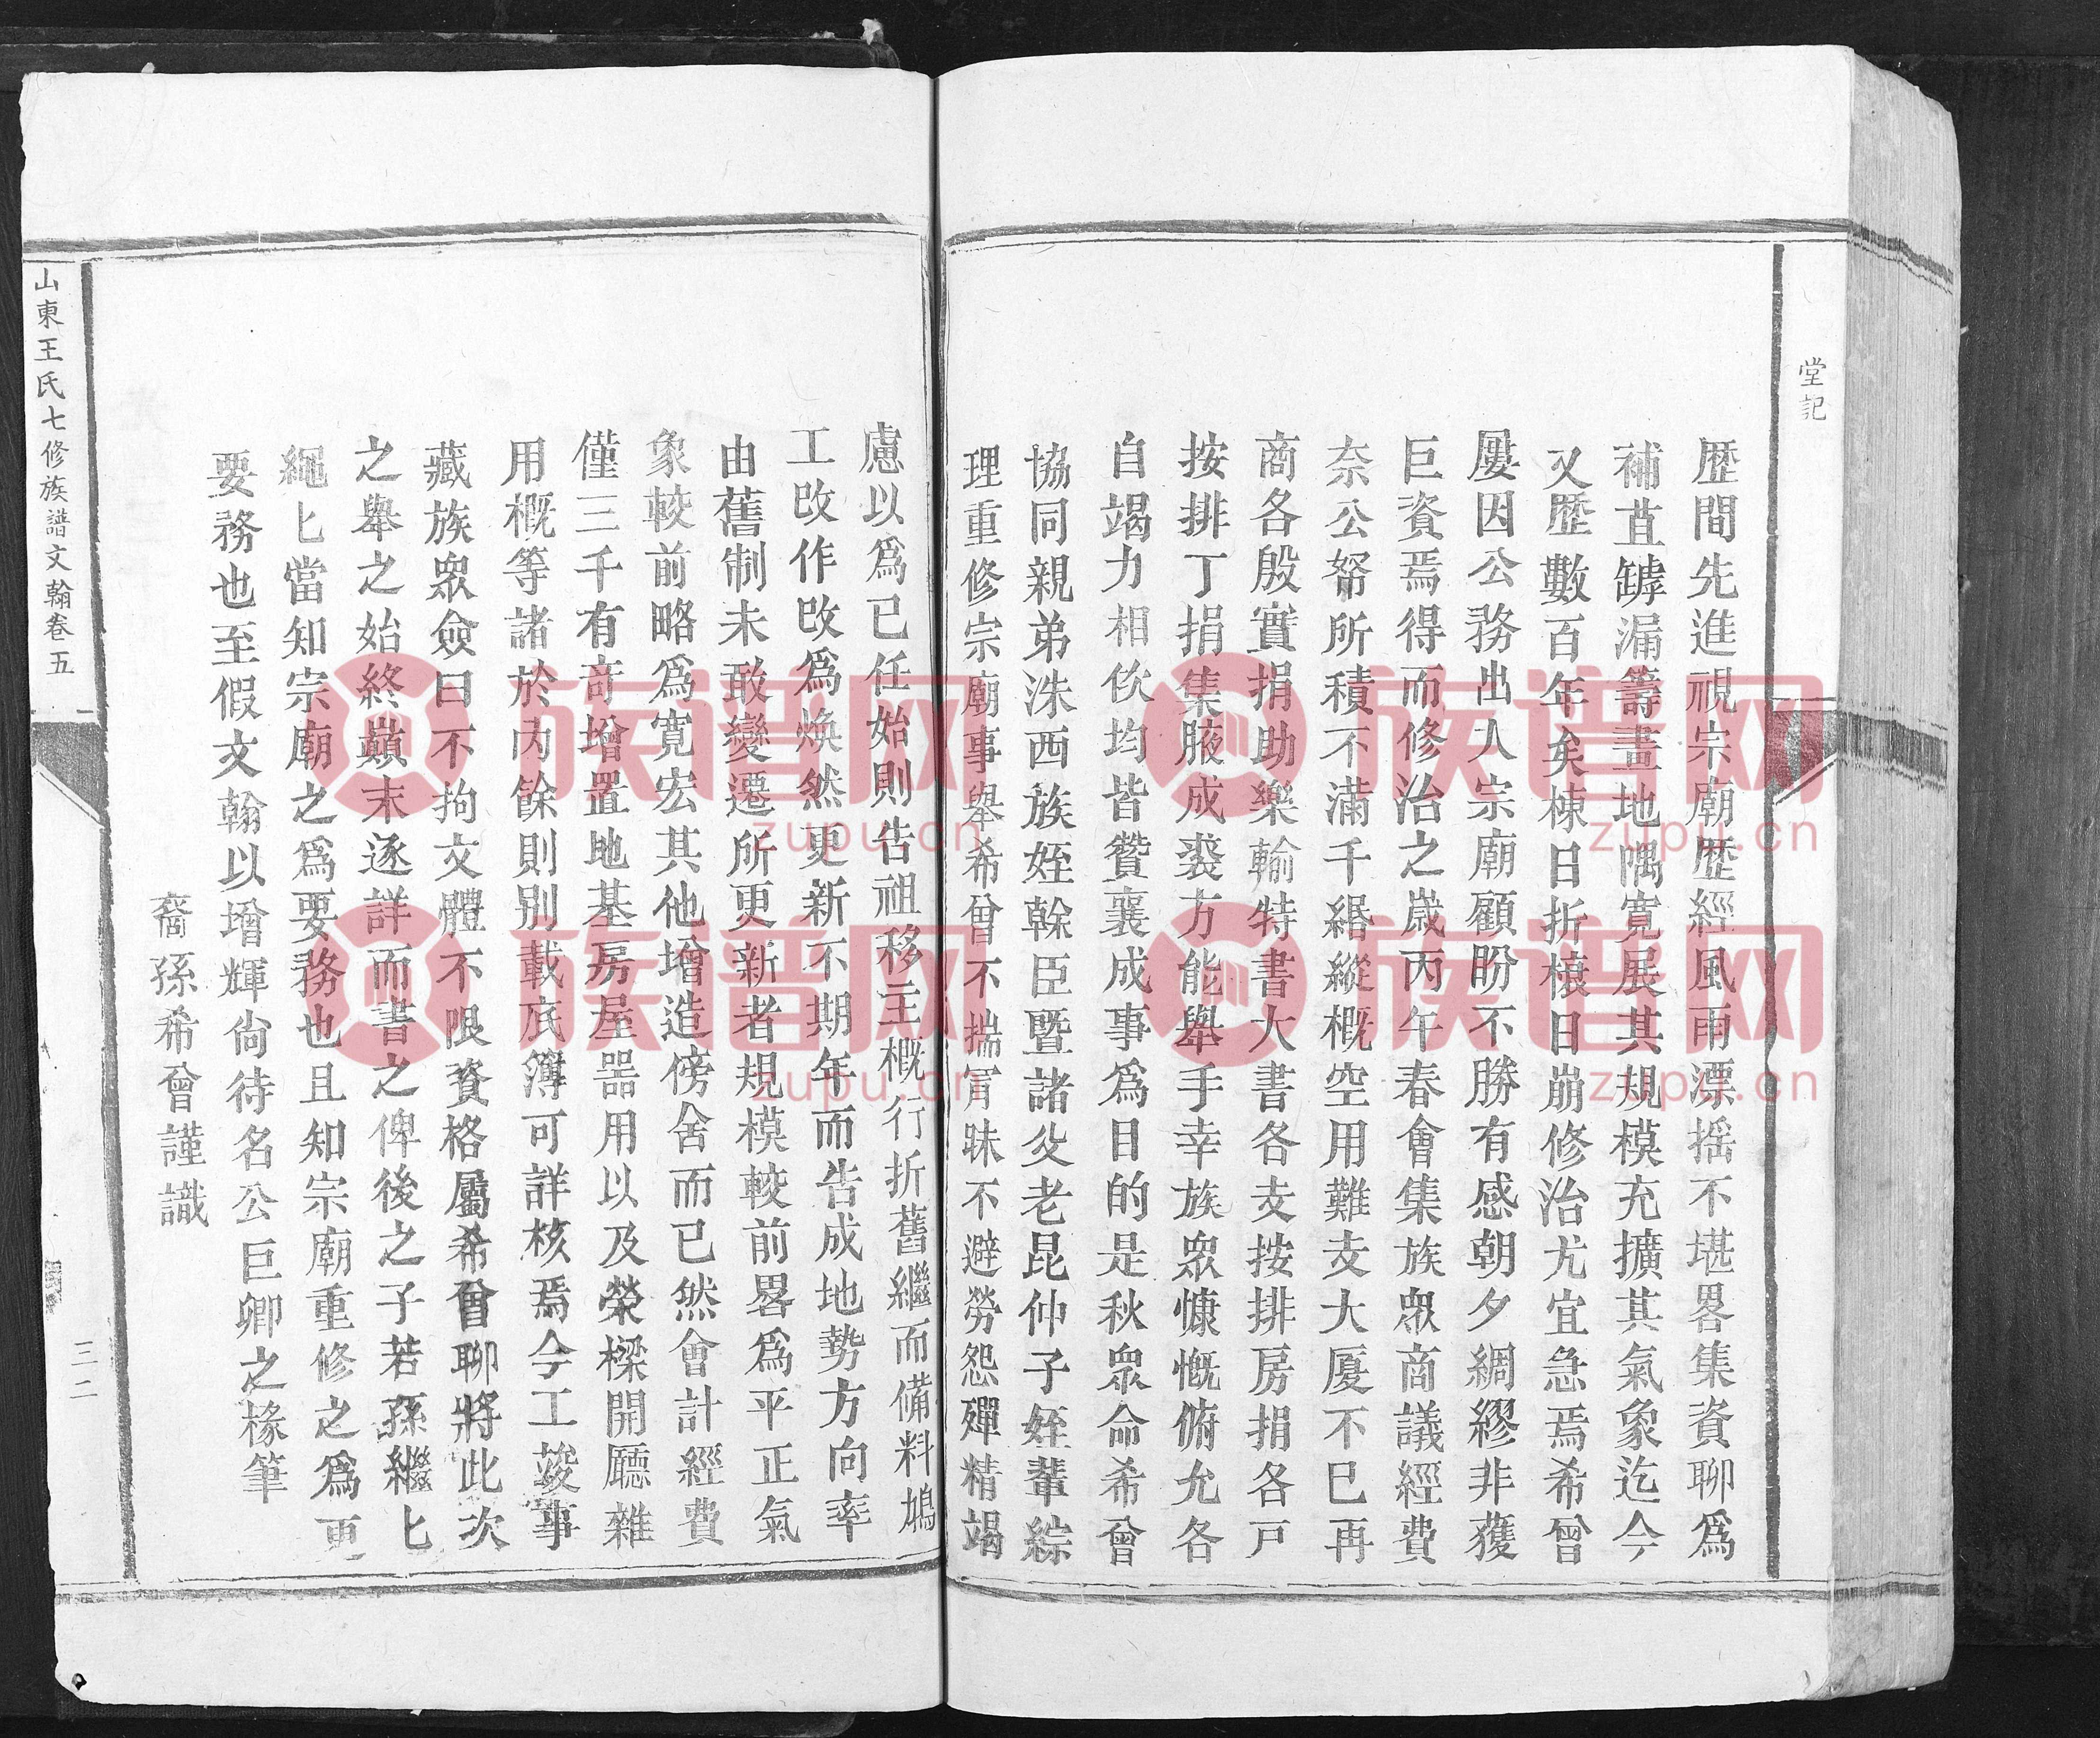 堂記
歷間先進視宗廟歷經風雨漂搖不堪畧集資聊爲
補苴罅漏籌畫地隅寬展其規模充擴其氣象迄今
又歷數百年矣棟日折榱日崩修治尤宜急焉希曾
屢因公務出入宗廟顧盼不勝有感朝夕綢繆非獲
巨資焉得而修治之歲丙午春會集族眾商議經費
奈公帑所積不滿千緡縱概空用難支大厦不已再
商各殷實捐助樂輸特書大書各支按排房捐各戸
按排丁捐集腋成裘方能舉手幸族眾慷慨俯允各
自竭力相佽均皆贊襄成事爲目的是秋眾命希曾
協同親弟洙西族姪榦臣暨諸父老昆仲子姪輩綜
理重修宗廟事舉希曾不揣冐昧不避勞怨殫精竭
慮以爲已任始則告祖移主概行折舊繼而備料鳩
工改作改爲焕然更新不期年而告成地勢方向率
由舊制未敢變遷所更新者規模較前畧爲平正氣
象較前略爲寬宏其他增造傍舍而已然會計經費
僅三千有竒增置地基房屋器用以及榮樑開廳雜
用概等諸於內餘則別載底簿可詳核焉今工竣事
藏族眾僉曰不拘文體不限資格屬希曾聊將此次
之舉之始終巔末逐詳而書之俾後之子若孫繼匕
繩匕當知宗廟之爲要務也且知宗廟重修之爲更
要務也至假文翰以增輝尙待名公巨卿之椽筆
裔孫希曾謹識
山東王氏七修族譜文翰卷五
三二
族谱网
zupu.cn
族谱网
zupu.cn
族谱网
zupu.cn
族谱网
zupu.cn